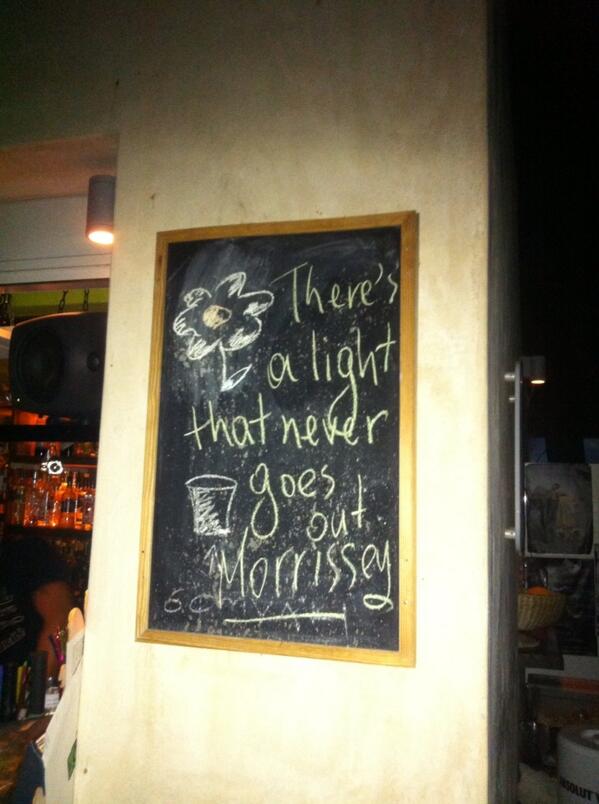 There's
a light
that never
goes
out
Morrissey
ABSOLUT